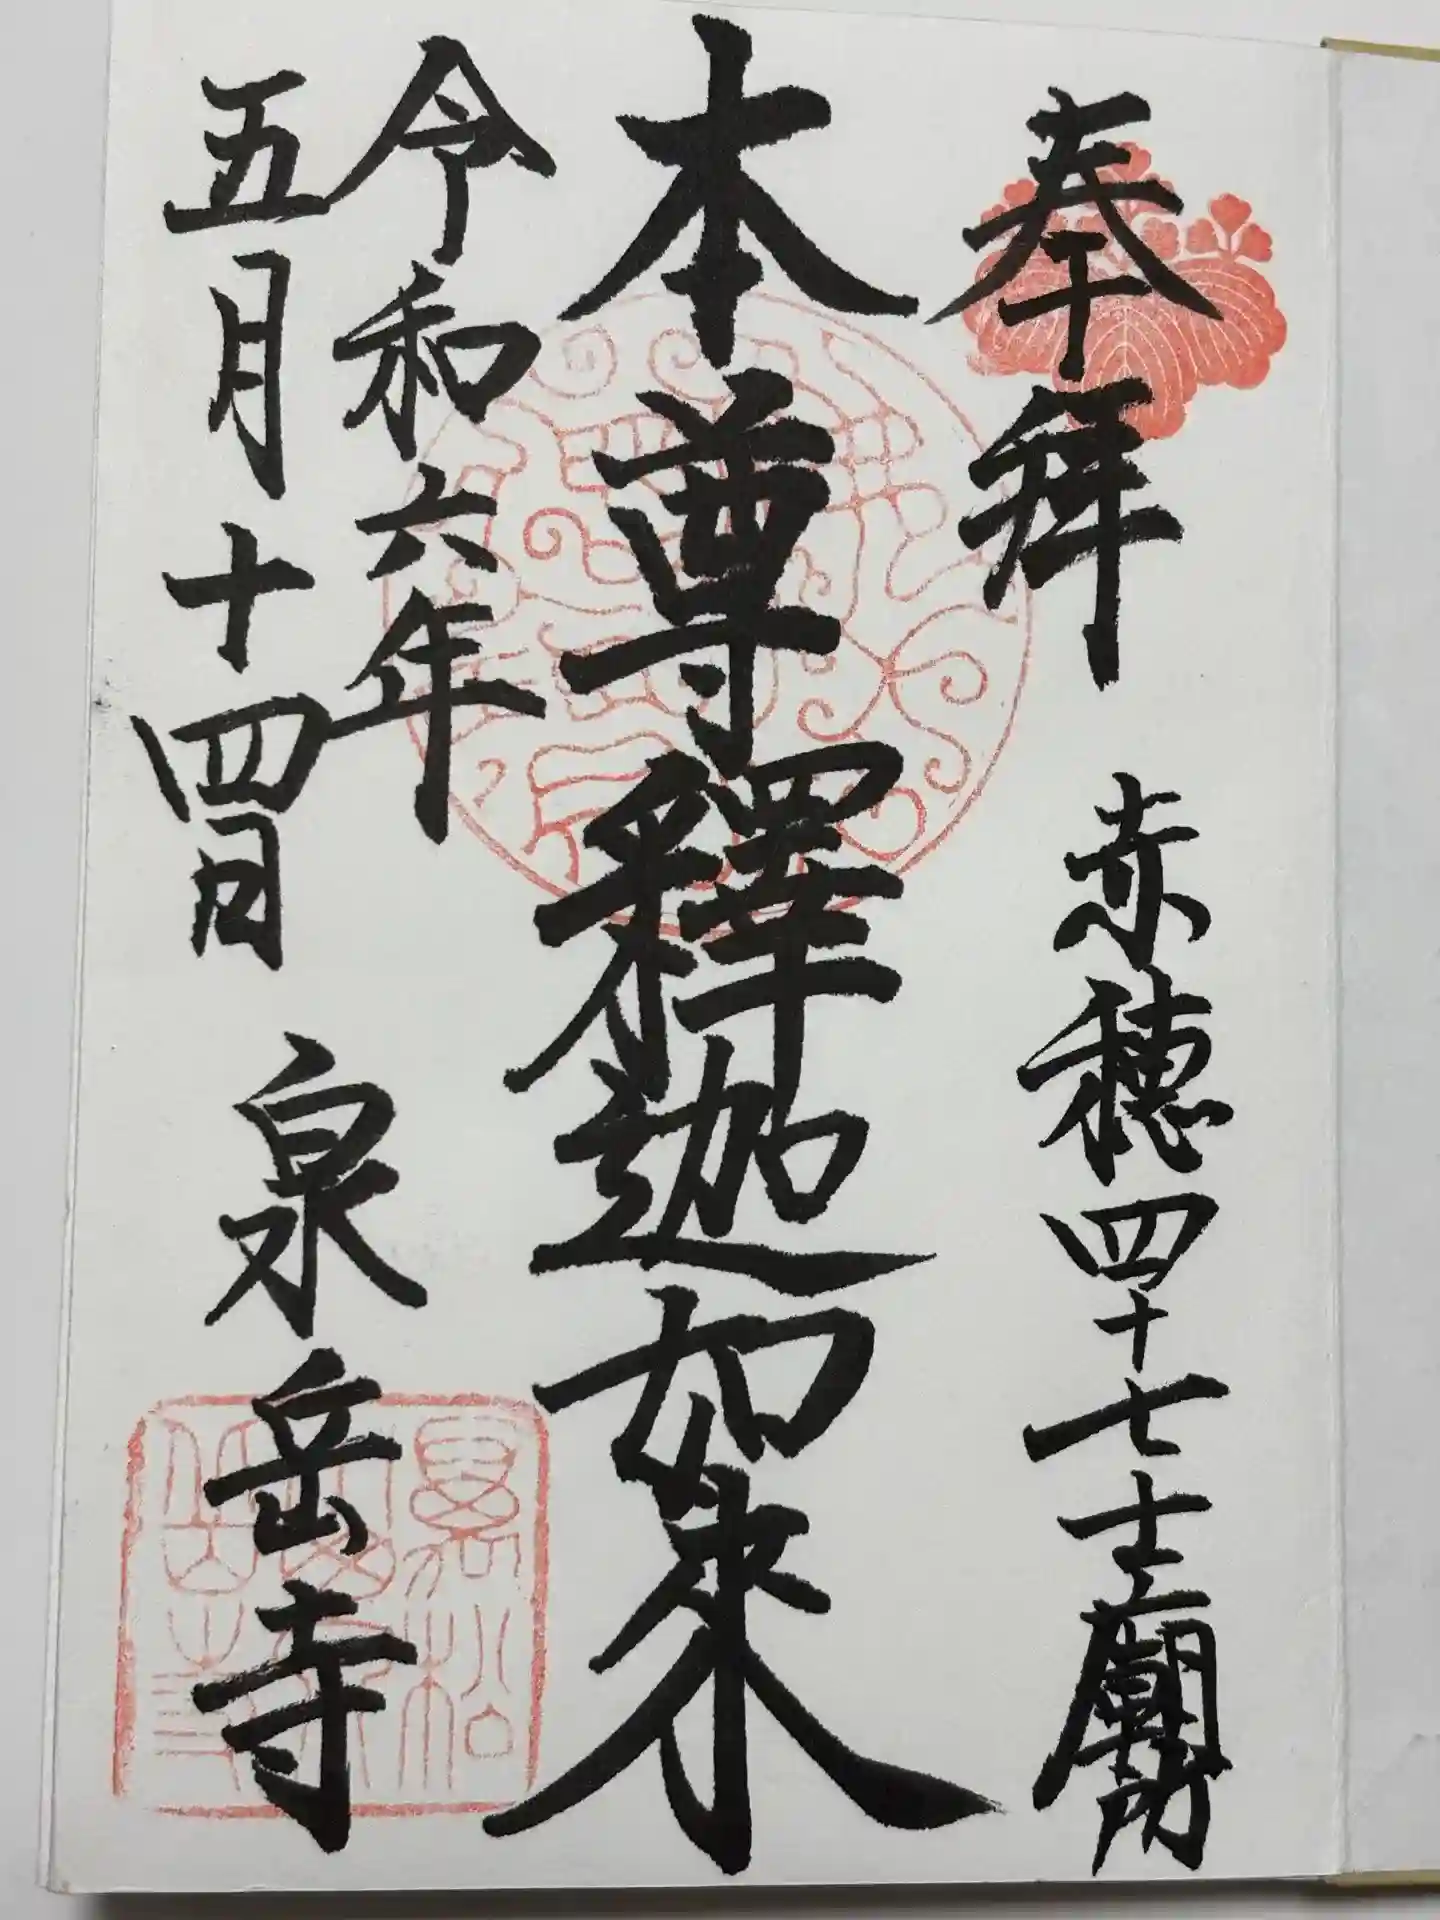 奉拜
赤穂四十七士廟所
本尊釋迦如来
令和六年
五月十四日
泉岳寺